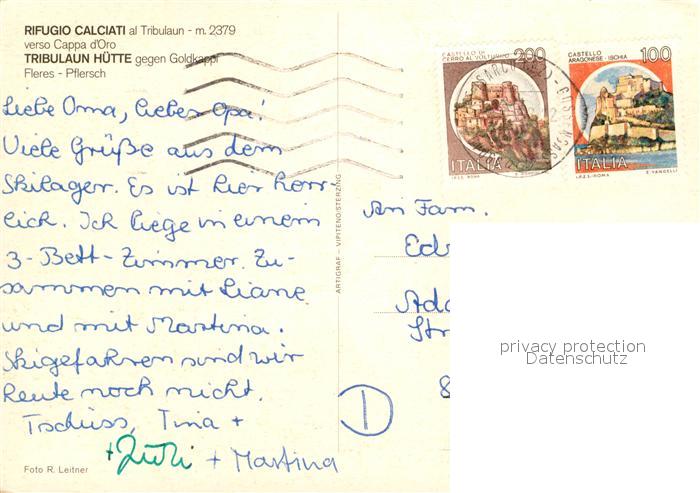 RIFUGIO CALCIATI al Tribulaun - m. 2379
verso Cappa d'Oro
TRIBULAUN HÜTTE gegen Goldkappl
Fleres - Pflersch
Liebe Oma, lieber Opa!
Viele Grüße aus dem
Skilager. Es ist hier herr-
lich. Ich liege in einem
3-Bett-Zimmer. Zu-
sammen mit Liane
und mit Martina.
Skigefahren sind wir
heute noch nicht.
Tschüss, Tina +
+ + Martina
Foto R. Leitner
ARTIGRAF - VIPITENO/STERZING
CASTELLO DI
CERRO AL VOLTURNO 200
ITALIA
I.P.Z.S. ROMA
CASTELLO
ARAGONESE - ISCHIA 100
ITALIA
I.P.Z.S. - ROMA E. VANGELLI
An Fam.
Ed
Ado
Str
8
D
privacy protection
Datenschutz